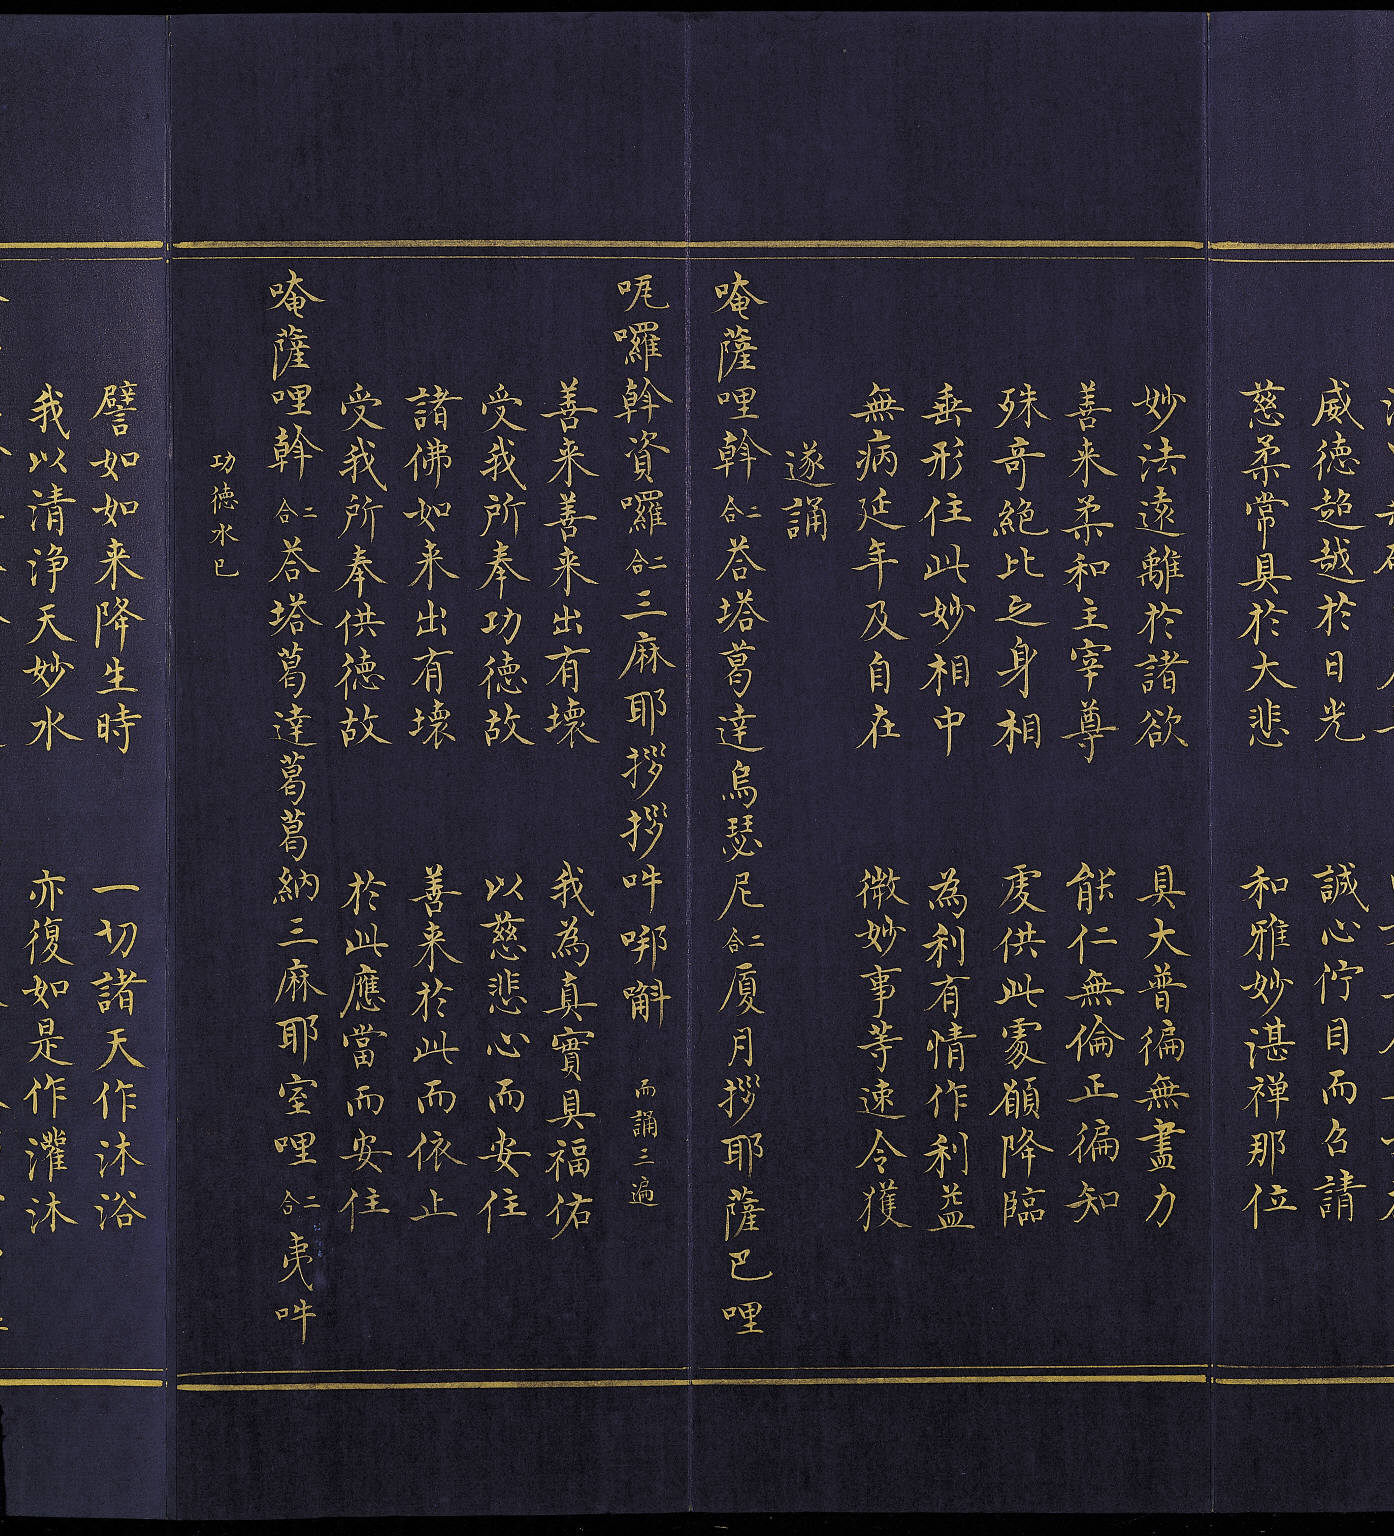 威德超越於日光　誠心佇目而召請
慈柔常具於大悲　和雅妙湛禅那位
妙法遠離於諸欲　具大普徧無盡力
善来柔和主宰尊　能仁無倫正徧知
殊竒絕比之身相　虔供此處願降臨
垂形住此妙相中　為利有情作利益
無病延年及自在　微妙事等速令獲
遂誦
唵薩哩斡二合荅塔葛達烏瑟尼二合厦月拶耶薩巴哩
呃囉斡資囉二合三麻耶拶拶吽㖿㘔而誦三遍
善来善来出有壞　我為真實具福佑
受我所奉功德故　以慈悲心而安住
諸佛如来出有壞　善来於此而依止
受我所奉供德故　於此應當而安住
唵薩哩斡二合荅塔葛達葛葛納三麻耶室哩二合夷吽
功德水巳
譬如如来降生時　一切諸天作沐浴
我以清淨天妙水　亦復如是作灌沐